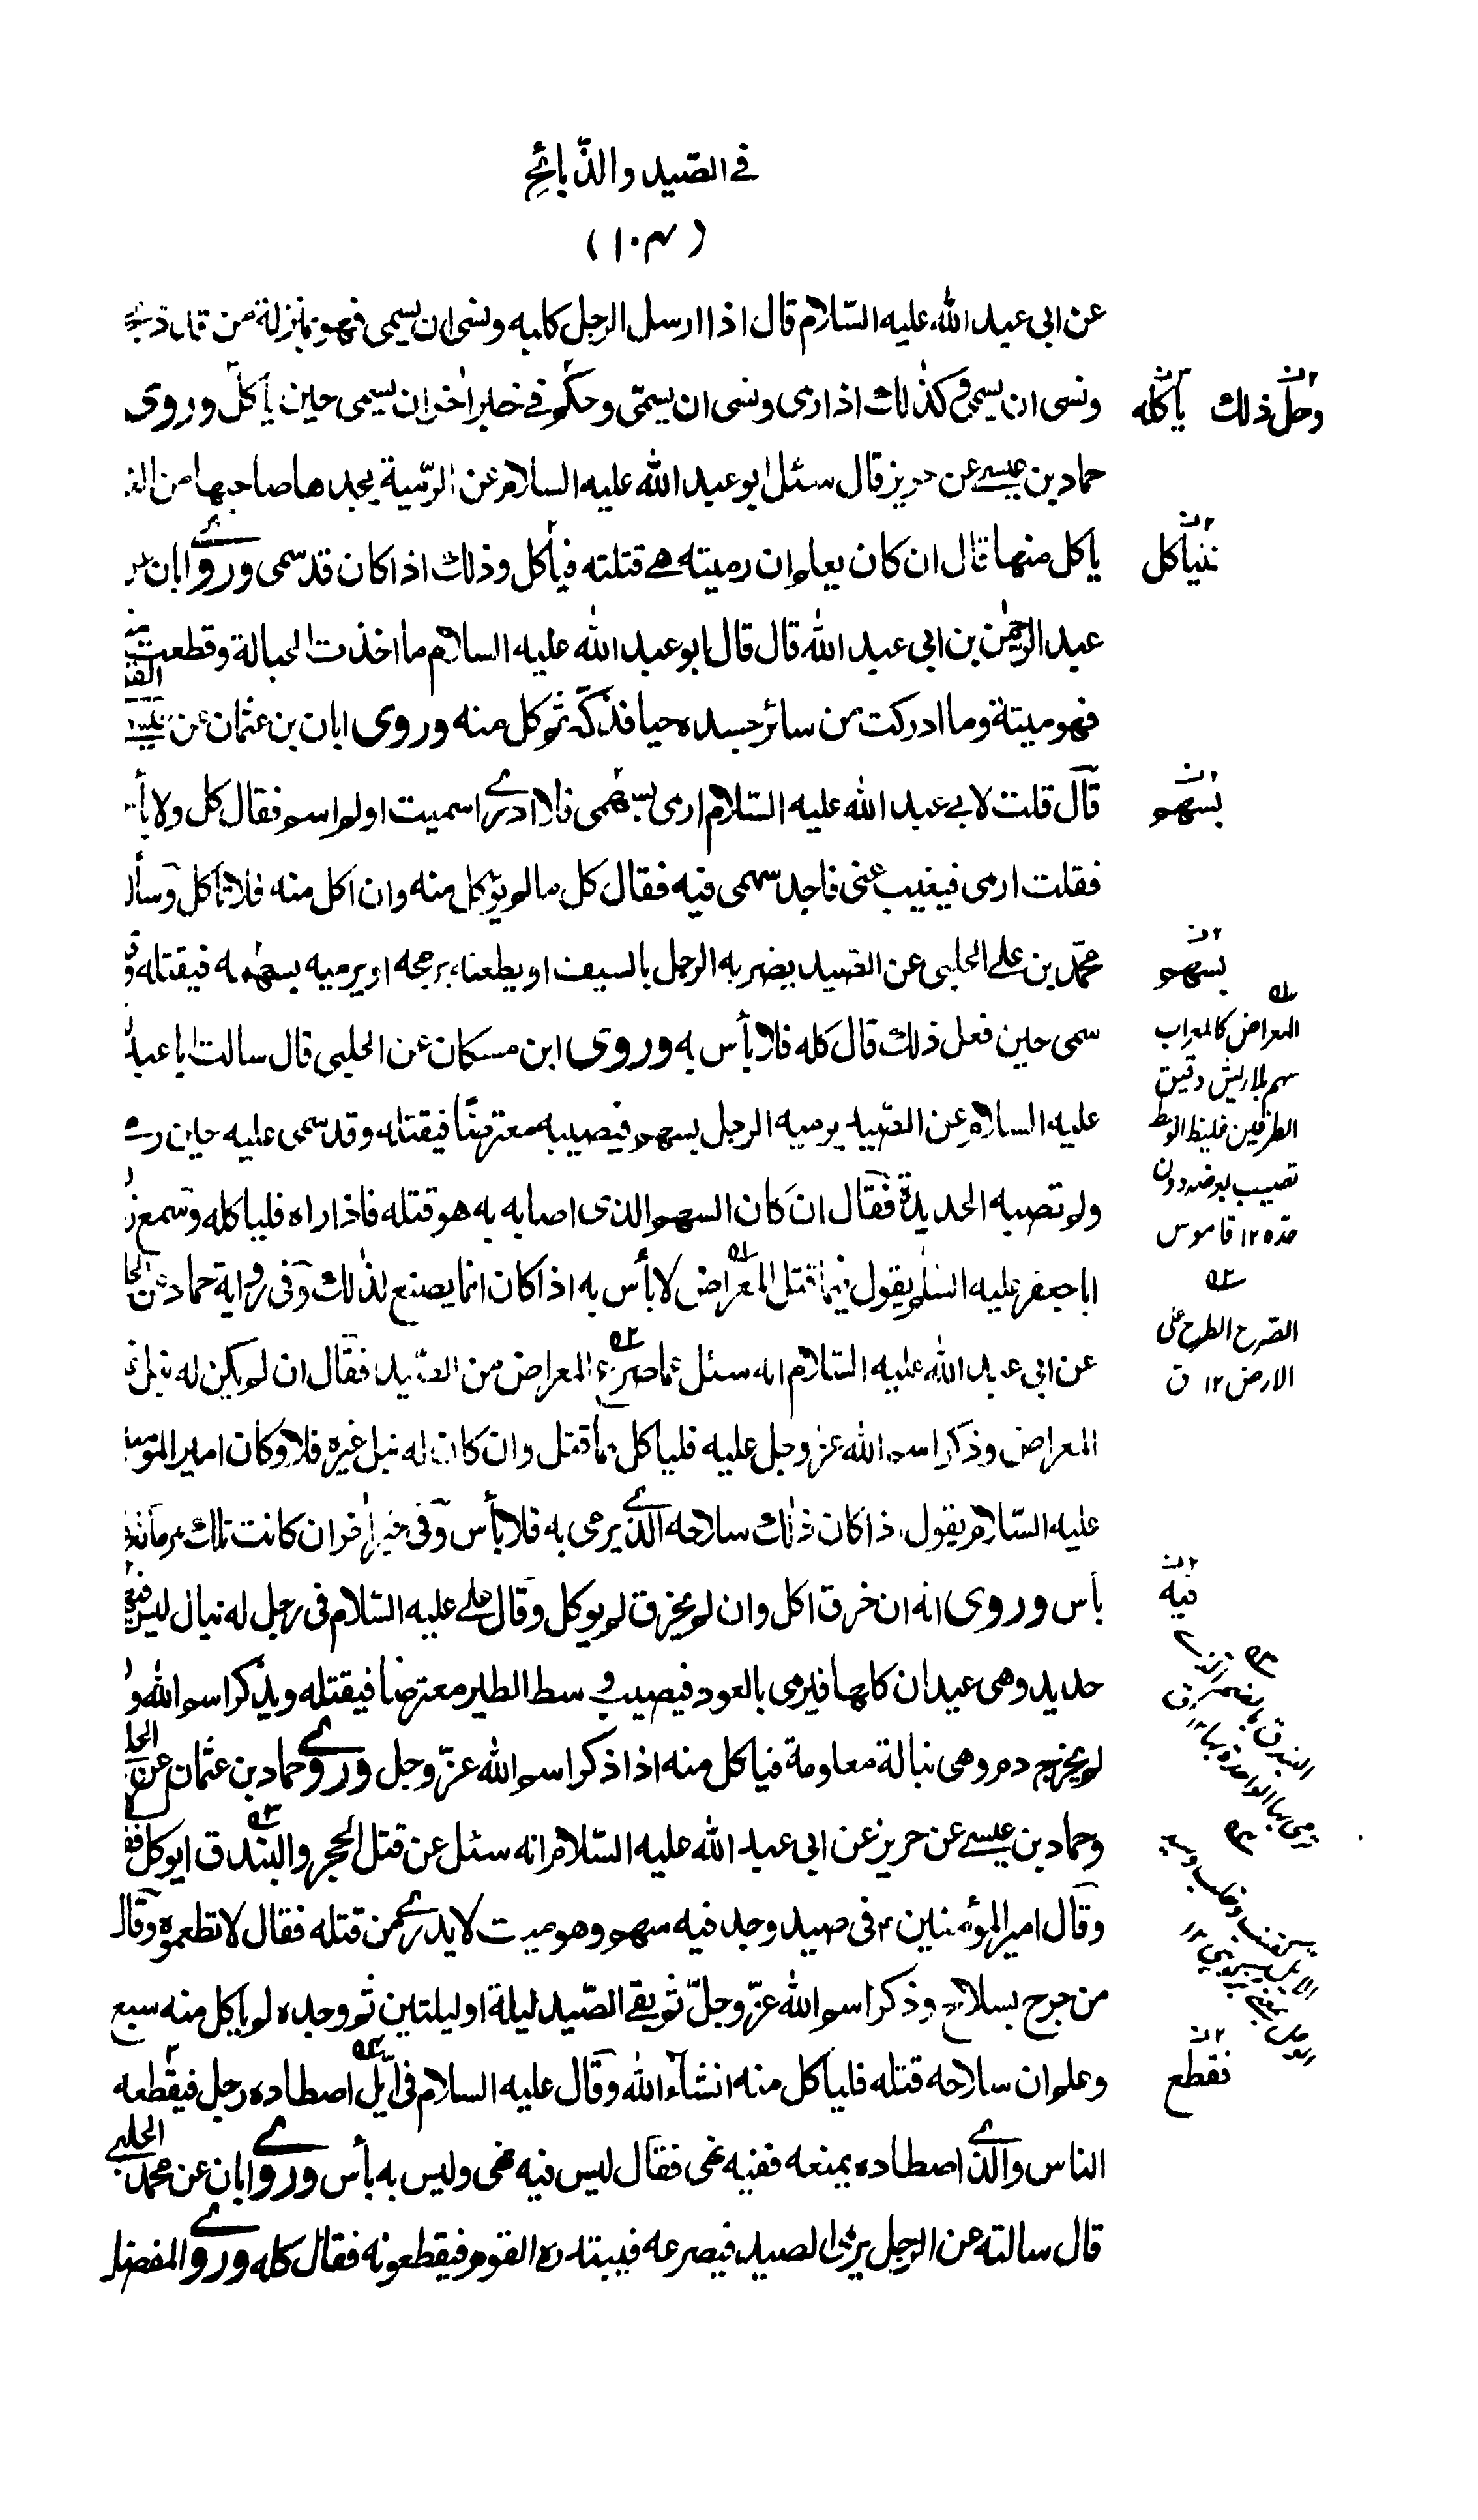 في الصّيد والذّبائح
(١٠٤)
عن ابى عبد الله عليه السّلام قال اذا ارسل الرجل كلبه ونسى ان يسمى فهو بمنزلة من
ونسى ان يسمى وكذلك اذا رمى ونسى ان يسمّى وحكم في خبر اخر ان يسمى حين ياكل وروى
حماد بن عيسے عن حريز قال سئل ابو عبد الله عليه السلام عن الرّمية يجدها صاحبها من
ياكل منها قال ان كان يعلم ان رميته هے قتلته فيأكل وذلك اذا كان قد سمى وروے ابان
عبد الرحمٰن بن ابى عبد الله قال قال ابو عبد الله عليه السلام ما اخذت الحبالة وقطعت
فهو ميتة وما ادركت من سائر جسده حيا فذكّه ثم كل منه وروى ابان بن عثمان عن
قال قلت لابے عبد الله عليه السّلام ارمى بسهمى فلا ادرے اسميت او لم اسم فقال كل ولا
فقلت ارمى فيغيب عنى فاجد سهمى فيه فقال كل ما لم يؤكل منه وان اكل منه فلا تأكل وسأل
محمّد بن علے الحلبى عن الصّيد يضربه الرجل بالسيف او يطعنه برمحه او يرميه بسهمه فيقتله
سمى حين فعل ذلك قال كله فلا بأس به وروى ابن مسكان عن الحلبى قال سالت ابا عبد
عليه السلام عن الصّيد يرميه الرجل بسهم فيصيبه معترضًا فيقتله وقد سمى عليه حين
ولم تصبه الحديدة فقال ان كان السهم الذى اصابه به هو قتله فاذا راه فلياكله وسمع
ابا جعفر عليه السلم يقول فيما قتل المعراض لا بأس به اذا كان انما يصنع لذلك وفى رواية حماد عن
عن ابى عبد الله عليه السّلام انه سئل عما صرع المعراض من الصّيد فقال ان لم يكن له نبل
المعراض وذكر اسم الله عز وجل عليه فلياكل مما قتل وان كان له نبل غيره فلا وكان امير
عليه السّلام يقول اذا كان ذلك سلاحه الّذے يرمى به فلا بأس وفى خبر اخر ان كانت تلك
بأس وروى انه ان خرق اكل وان لم يخرق لم يوكل وقال علے عليه السّلام فى رجل له نبال ليس
حديد وهى عيدان كلها فيرمى بالعود فيصيب وسط الطير معترضا فيقتله ويذكر اسم الله و
لم يخرج دم وهى نبالة معلومة فياكل منه اذا ذكر اسم الله عزّ وجل وروے حماد بن عثمان عن
وحماد بن عيسے عن حريز عن ابى عبد الله عليه السّلام انه سئل عن قتل الحجر والبندق ايوكل
وقال امير المؤمنين ع فى صيد وجد فيه سهم وهو ميت لا يدرے من قتله فقال لا تطعموه وقال
من جرح بسلاح وذكر اسم الله عزّ وجلّ ثم بقے الصّيد ليلة او ليلتين ثم وجده لم ياكل منه سبع
وعلم ان سلاحه قتله فلياكل منه انشاء الله وقال عليه السلام فى ايّل اصطاده رجل فيقطعه
الناس والذے اصطاده يمنعه ففيه نهى فقال ليس فيه نهى وليس به بأس وروے ابان عن محمد الحلبے
قال سالته عن الرجل يرمى الصيد فيصرعه فيبتدره القوم فيقطعونه فقال كله وروے المفضل
وحلّ ذلك ياكله
فياكل
بسهم
بسهم
المعراض كالمحراب
سهم بلا ريش دقيق
الطرفين غليظ الوسط
تصيب بعرضه دون
حده ١٢ قاموس
الصرع الطرح على
الارض ١٢ ق
فيه
فقطع